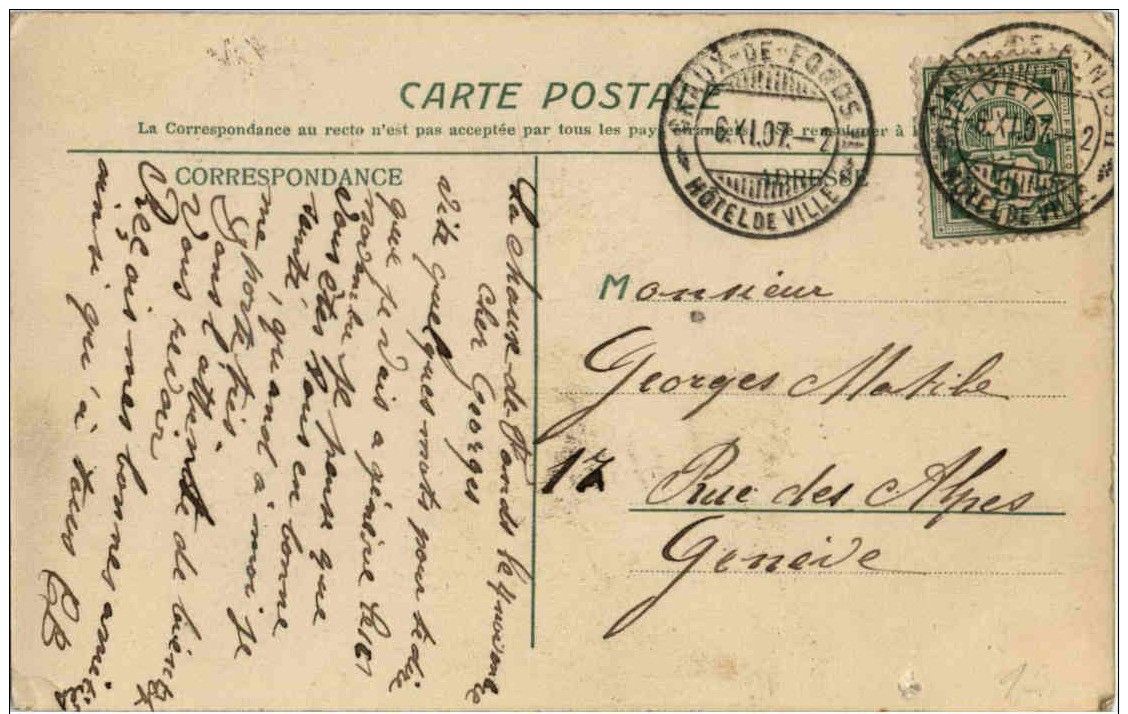 CARTE POSTALE
La Correspondance au recto n'est pas acceptée par tous les pays étrangers. Se à
CORRESPONDANCE
ADRESSE
CHAUX-DE-FONDS
6.XI.07.-2
HÔTEL DE VILLE
HELVETIA
6.XI.07.-2
HÔTEL DE VILLE
La Chaux-de-Fonds le novembre
Cher Georges
Vite quelques mots pour te dire
que je vais a genève le
novembre je pense que
vous êtes tous en bonne
santé, quand à moi je
me porte très
Dans l'attente de bientôt
Vous revoir
Reçois mes bonnes amitiés
ainsi qu'à tous
Monsieur
Georges Matile
17 Rue des Alpes
Genève